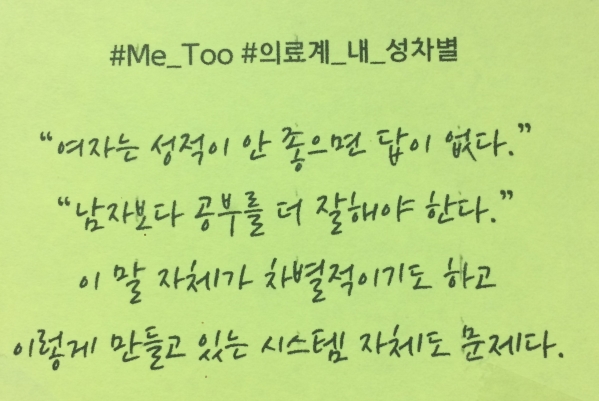 #Me_Too #의료계_내_성차별
“여자는 성적이 안 좋으면 답이 없다.”
“남자보다 공부를 더 잘해야 한다.”
이 말 자체가 차별적이기도 하고
이렇게 만들고 있는 시스템 자체도 문제다.